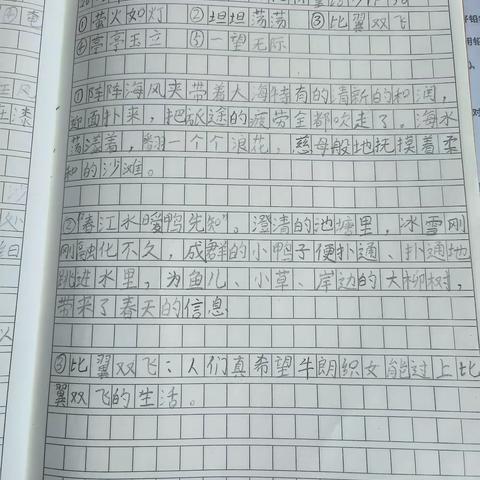 ①萤火如灯 ②坦坦荡荡 ③比翼双飞
④亭亭玉立 ⑤一望无际
①阵阵海风夹带着大海特有的清新的和润，
迎面扑来，把旅途的疲劳全都吹走了。海水
荡漾着，翻一个个浪花，慈母般地抚摸着柔
和的沙滩。
②"春江水暖鸭先知"。澄清的池塘里，冰雪刚
刚融化不久，成群的小鸭子便扑通、扑通地
跳进水里，为鱼儿、小草、岸边的大柳树，
带来了春天的信息
③比翼双飞：人们真希望牛朗织女能过上比
翼双飞的生活。